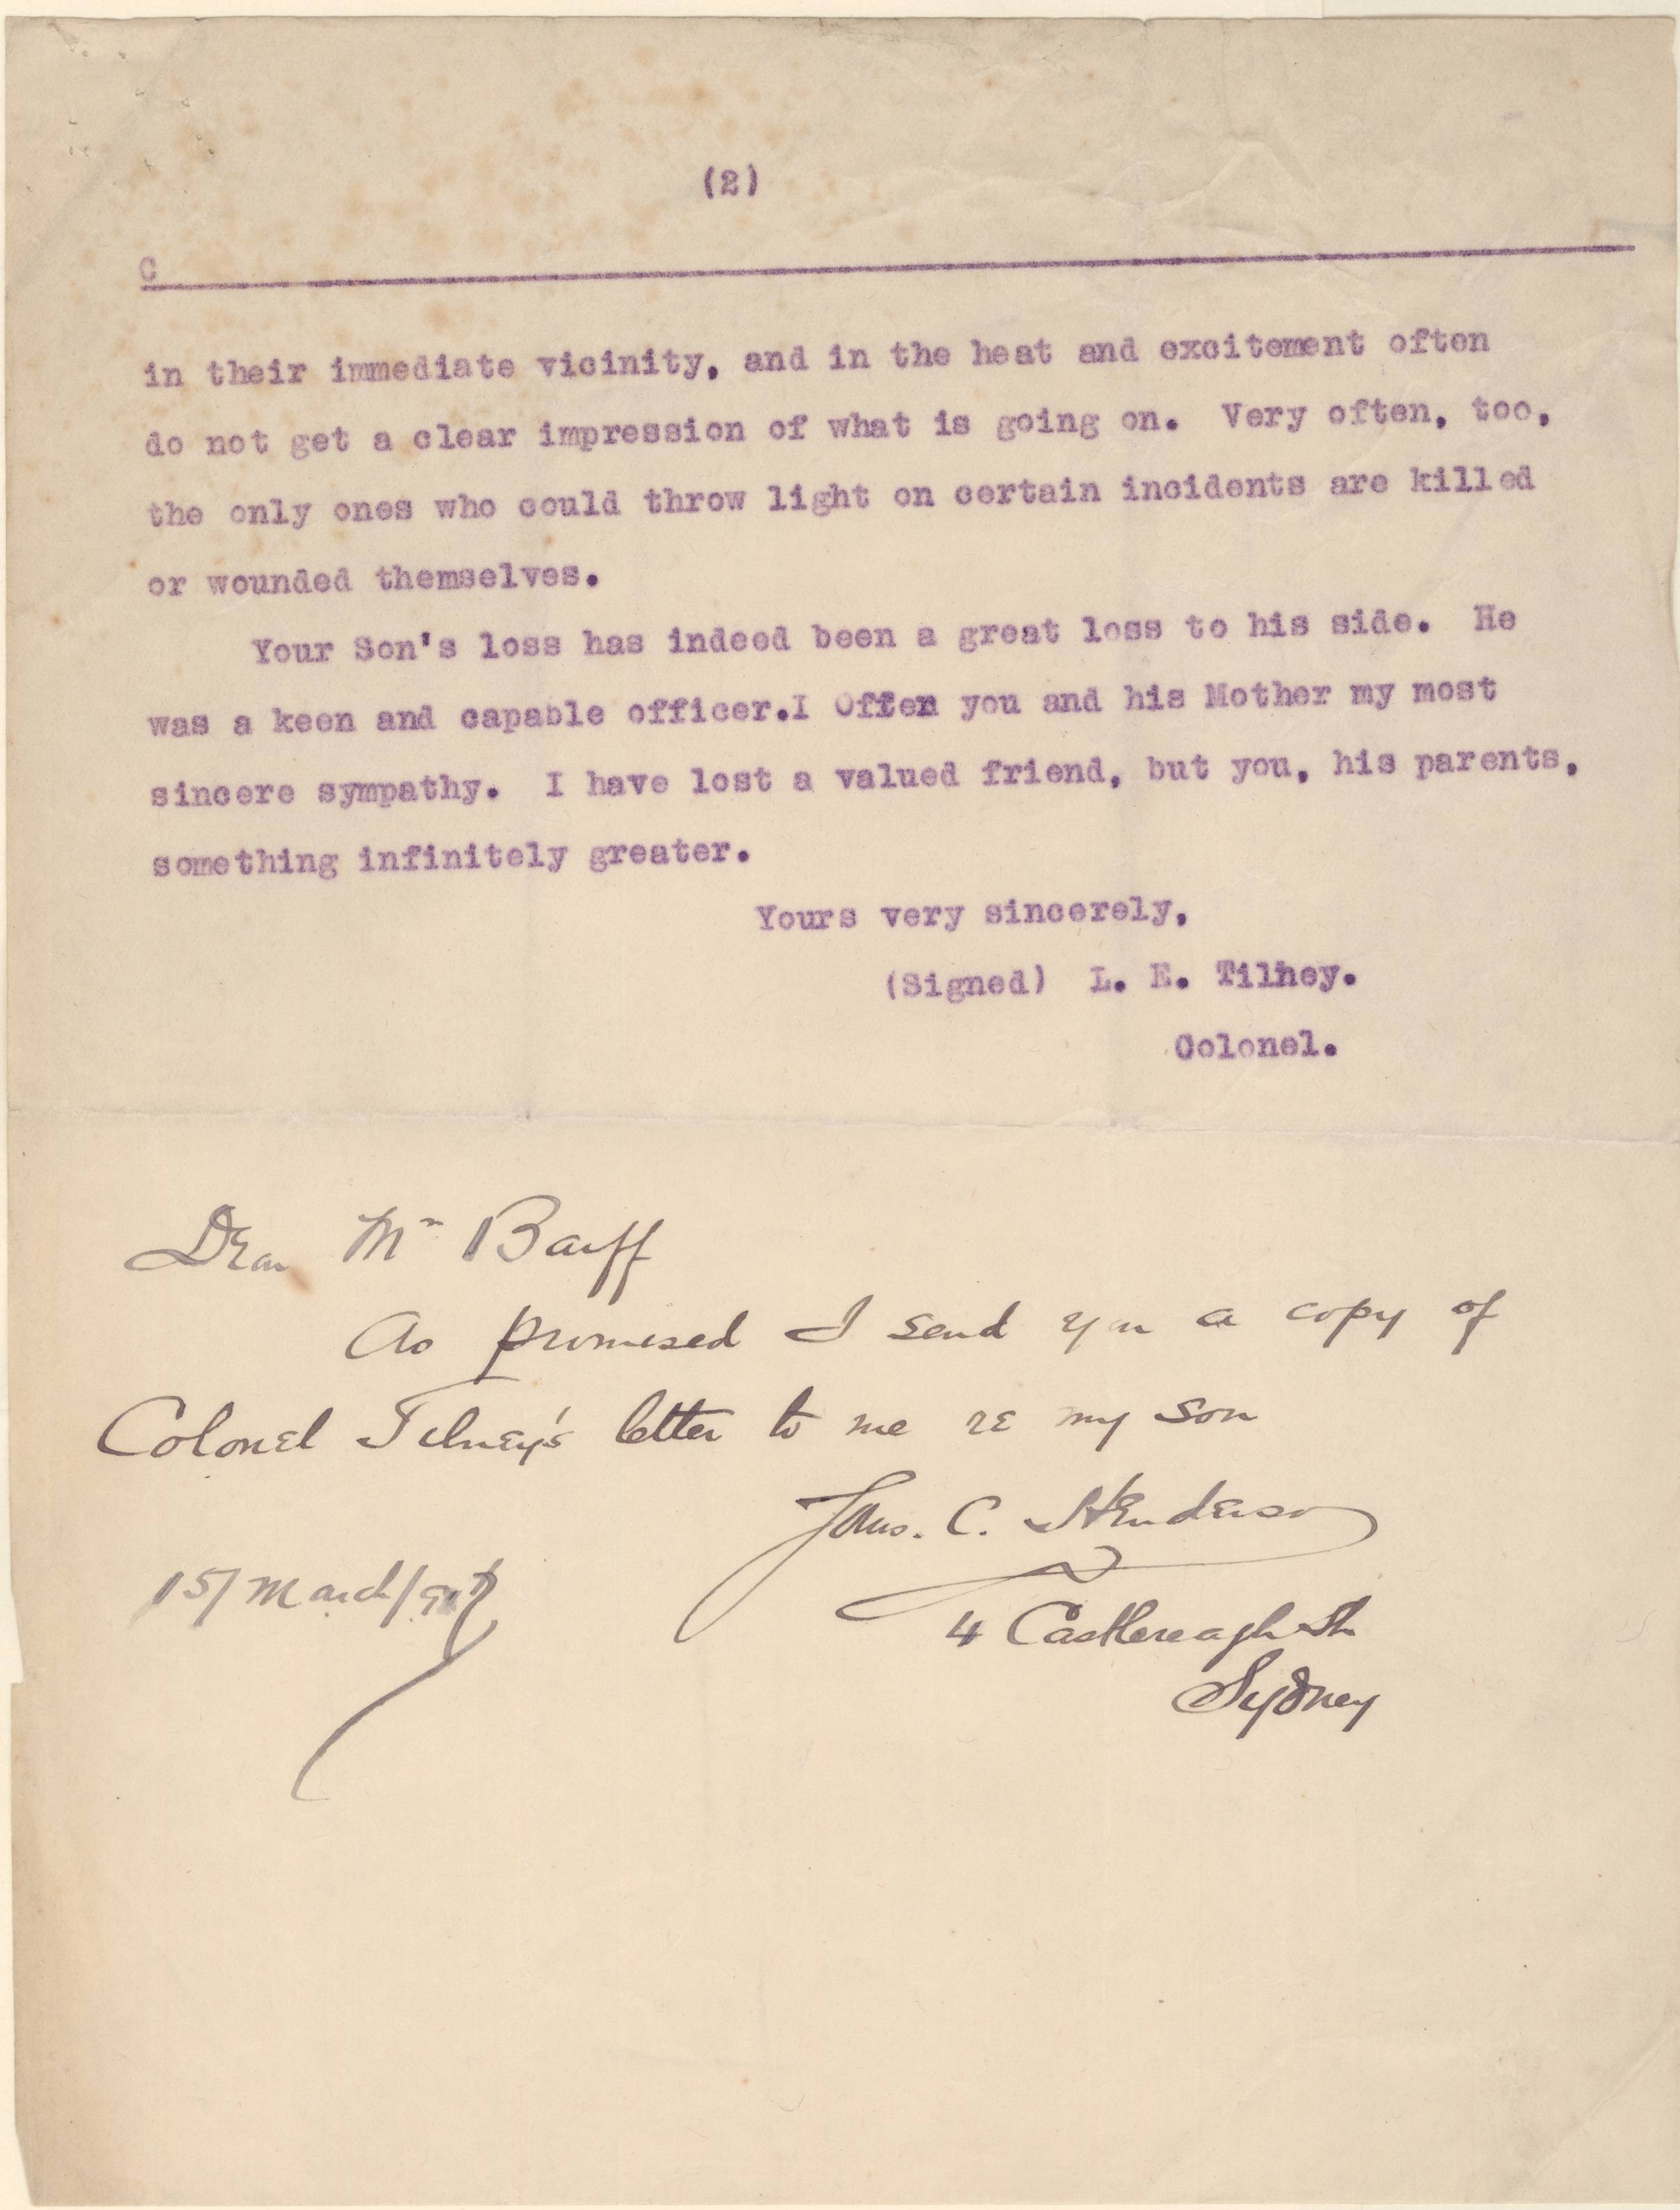 (2)
C
in their immediate vicinity, and in the heat and excitement often
do not get a clear impression of what is going on. Very often, too,
the only ones who could throw light on certain incidents are killed
or wounded themselves.
Your Son's loss has indeed been a great loss to his side. He
was a keen and capable officer.I Offen you and his Mother my most
sincere sympathy. I have lost a valued friend, but you, his parents,
something infinitely greater.
Yours very sincerely,
(Signed) L. E. Tilney.
Colonel.
Dear Mr Barff
As promised I send you a copy of
Colonel Tilney's letter to me re my son
C. Henderson
15/March/917
4 Castlereagh St
Sydney